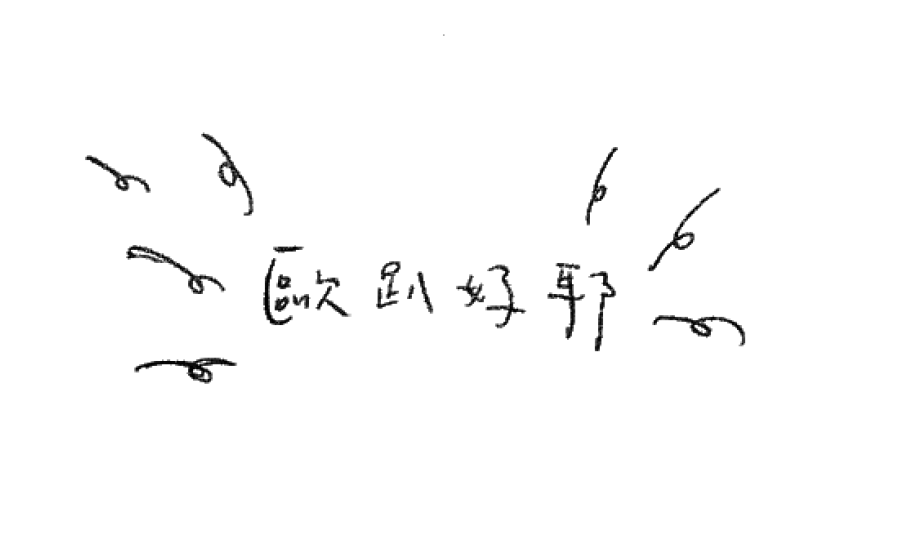 歐趴好耶